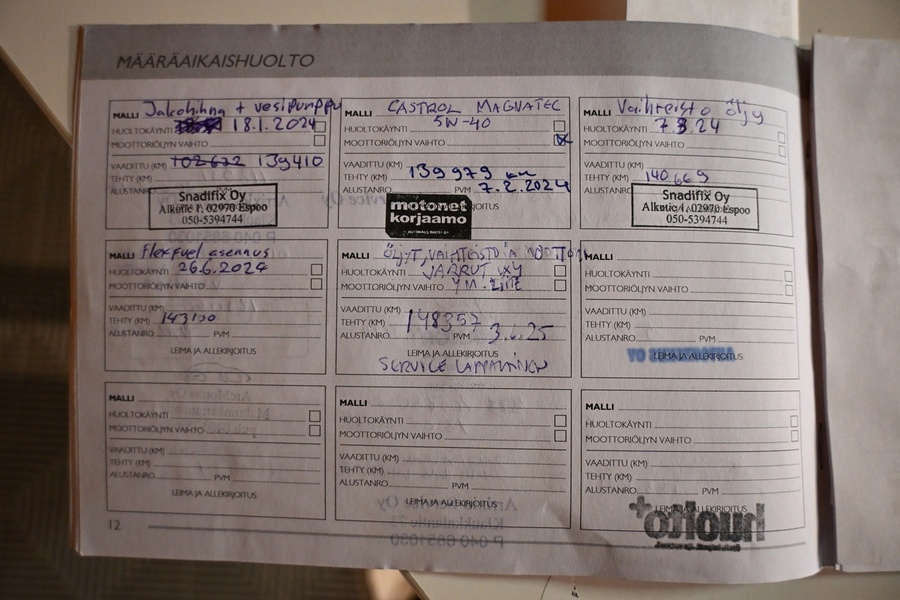 MÄÄRÄAIKAISHUOLTO
MALLI Jakohihna + vesipumppu
HUOLTOKÄYNTI 18.1.2024
MOOTTORIÖLJYN VAIHTO
VAADITTU (KM) 102 672 139410
TEHTY (KM)
ALUSTANRO
Snadifix Oy
02970 Espoo
050-5394744
MALLI CASTROL MAGNATEC
HUOLTOKÄYNTI 5W-40
MOOTTORIÖLJYN VAIHTO
VAADITTU (KM)
TEHTY (KM) 139979 km
ALUSTANRO PVM 7.2.2024
motonet
korjaamo
MALLI Vaihteisto öljy
HUOLTOKÄYNTI 7 3 24
MOOTTORIÖLJYN VAIHTO
VAADITTU (KM)
TEHTY (KM) 140 669
ALUSTANRO
Snadifix Oy
02970 Espoo
050-5394744
MALLI Flexfuel asennus
HUOLTOKÄYNTI 26.6.2024
MOOTTORIÖLJYN VAIHTO
VAADITTU (KM)
TEHTY (KM) 143100
ALUSTANRO PVM
LEIMA JA ALLEKIRJOITUS
MALLI ÖLJYT, VAIHTEISTO
HUOLTOKÄYNTI JARRUT
MOOTTORIÖLJYN VAIHTO YM.
VAADITTU (KM)
TEHTY (KM) 148357
ALUSTANRO PVM 3.6.25
LEIMA JA ALLEKIRJOITUS
SERVICE LAPPALAINEN
MALLI
HUOLTOKÄYNTI
MOOTTORIÖLJYN VAIHTO
VAADITTU (KM)
TEHTY (KM)
ALUSTANRO PVM
LEIMA JA ALLEKIRJOITUS
MALLI
HUOLTOKÄYNTI
MOOTTORIÖLJYN VAIHTO
VAADITTU (KM)
TEHTY (KM)
ALUSTANRO PVM
LEIMA JA ALLEKIRJOITUS
MALLI
HUOLTOKÄYNTI
MOOTTORIÖLJYN VAIHTO
VAADITTU (KM)
TEHTY (KM)
ALUSTANRO PVM
LEIMA JA ALLEKIRJOITUS
MALLI
HUOLTOKÄYNTI
MOOTTORIÖLJYN VAIHTO
VAADITTU (KM)
TEHTY (KM)
ALUSTANRO PVM
LEIMA JA ALLEKIRJOITUS
huolto+
12